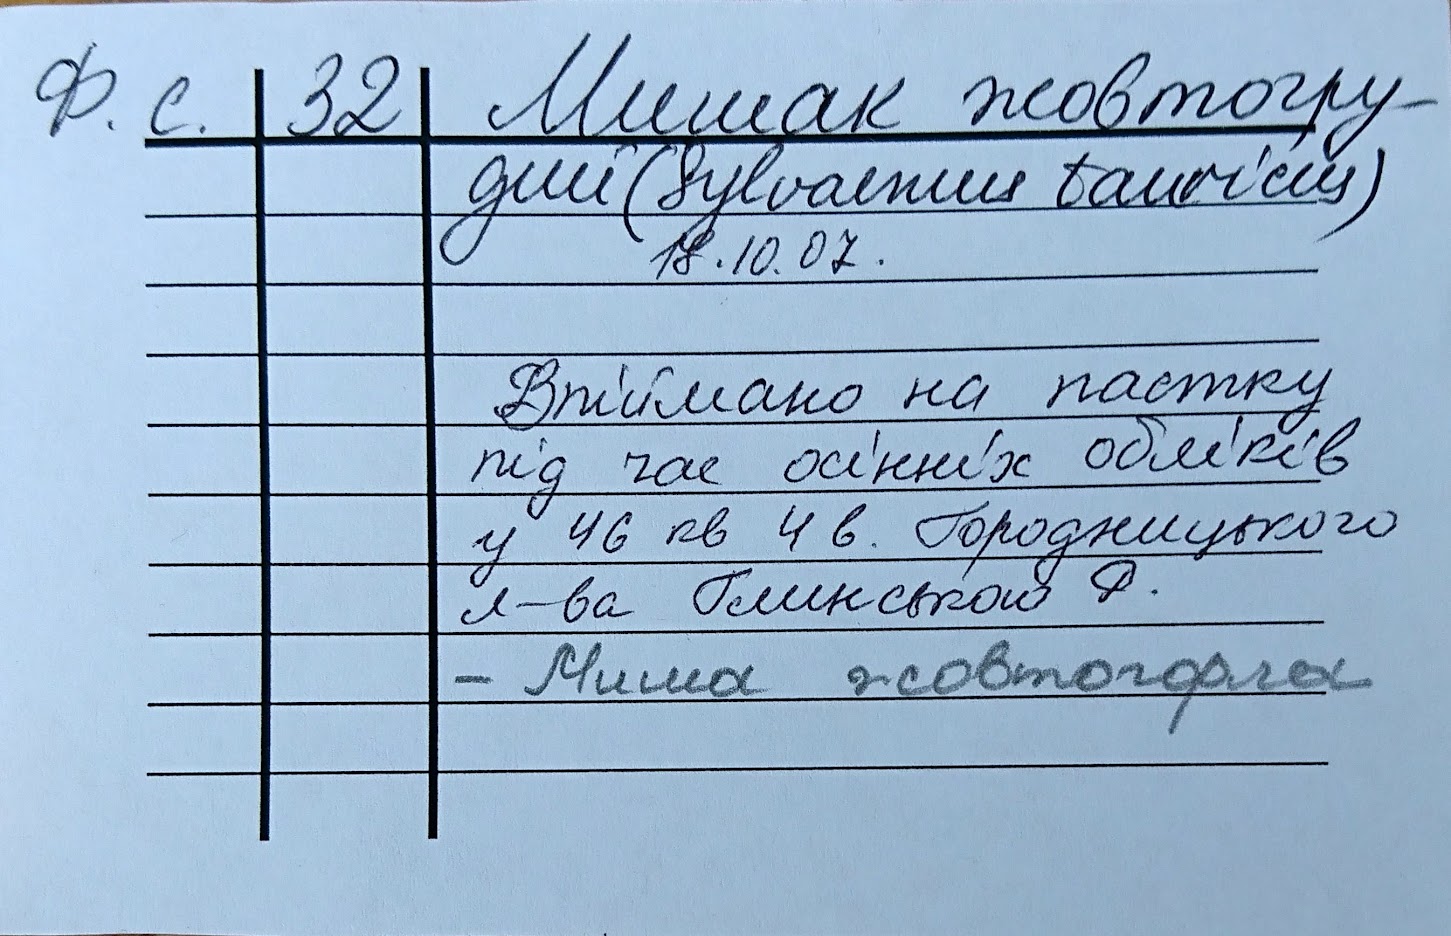 Ф. с. 32 Мишак жовтогру-
дий (Sylvaemus tauricus)
18.10.07.
Впіймано на пастку
під час осінніх обліків
у 46 кв 4 в. Городницького
л-ва Глинською Ф.
- Миша жовтогорла